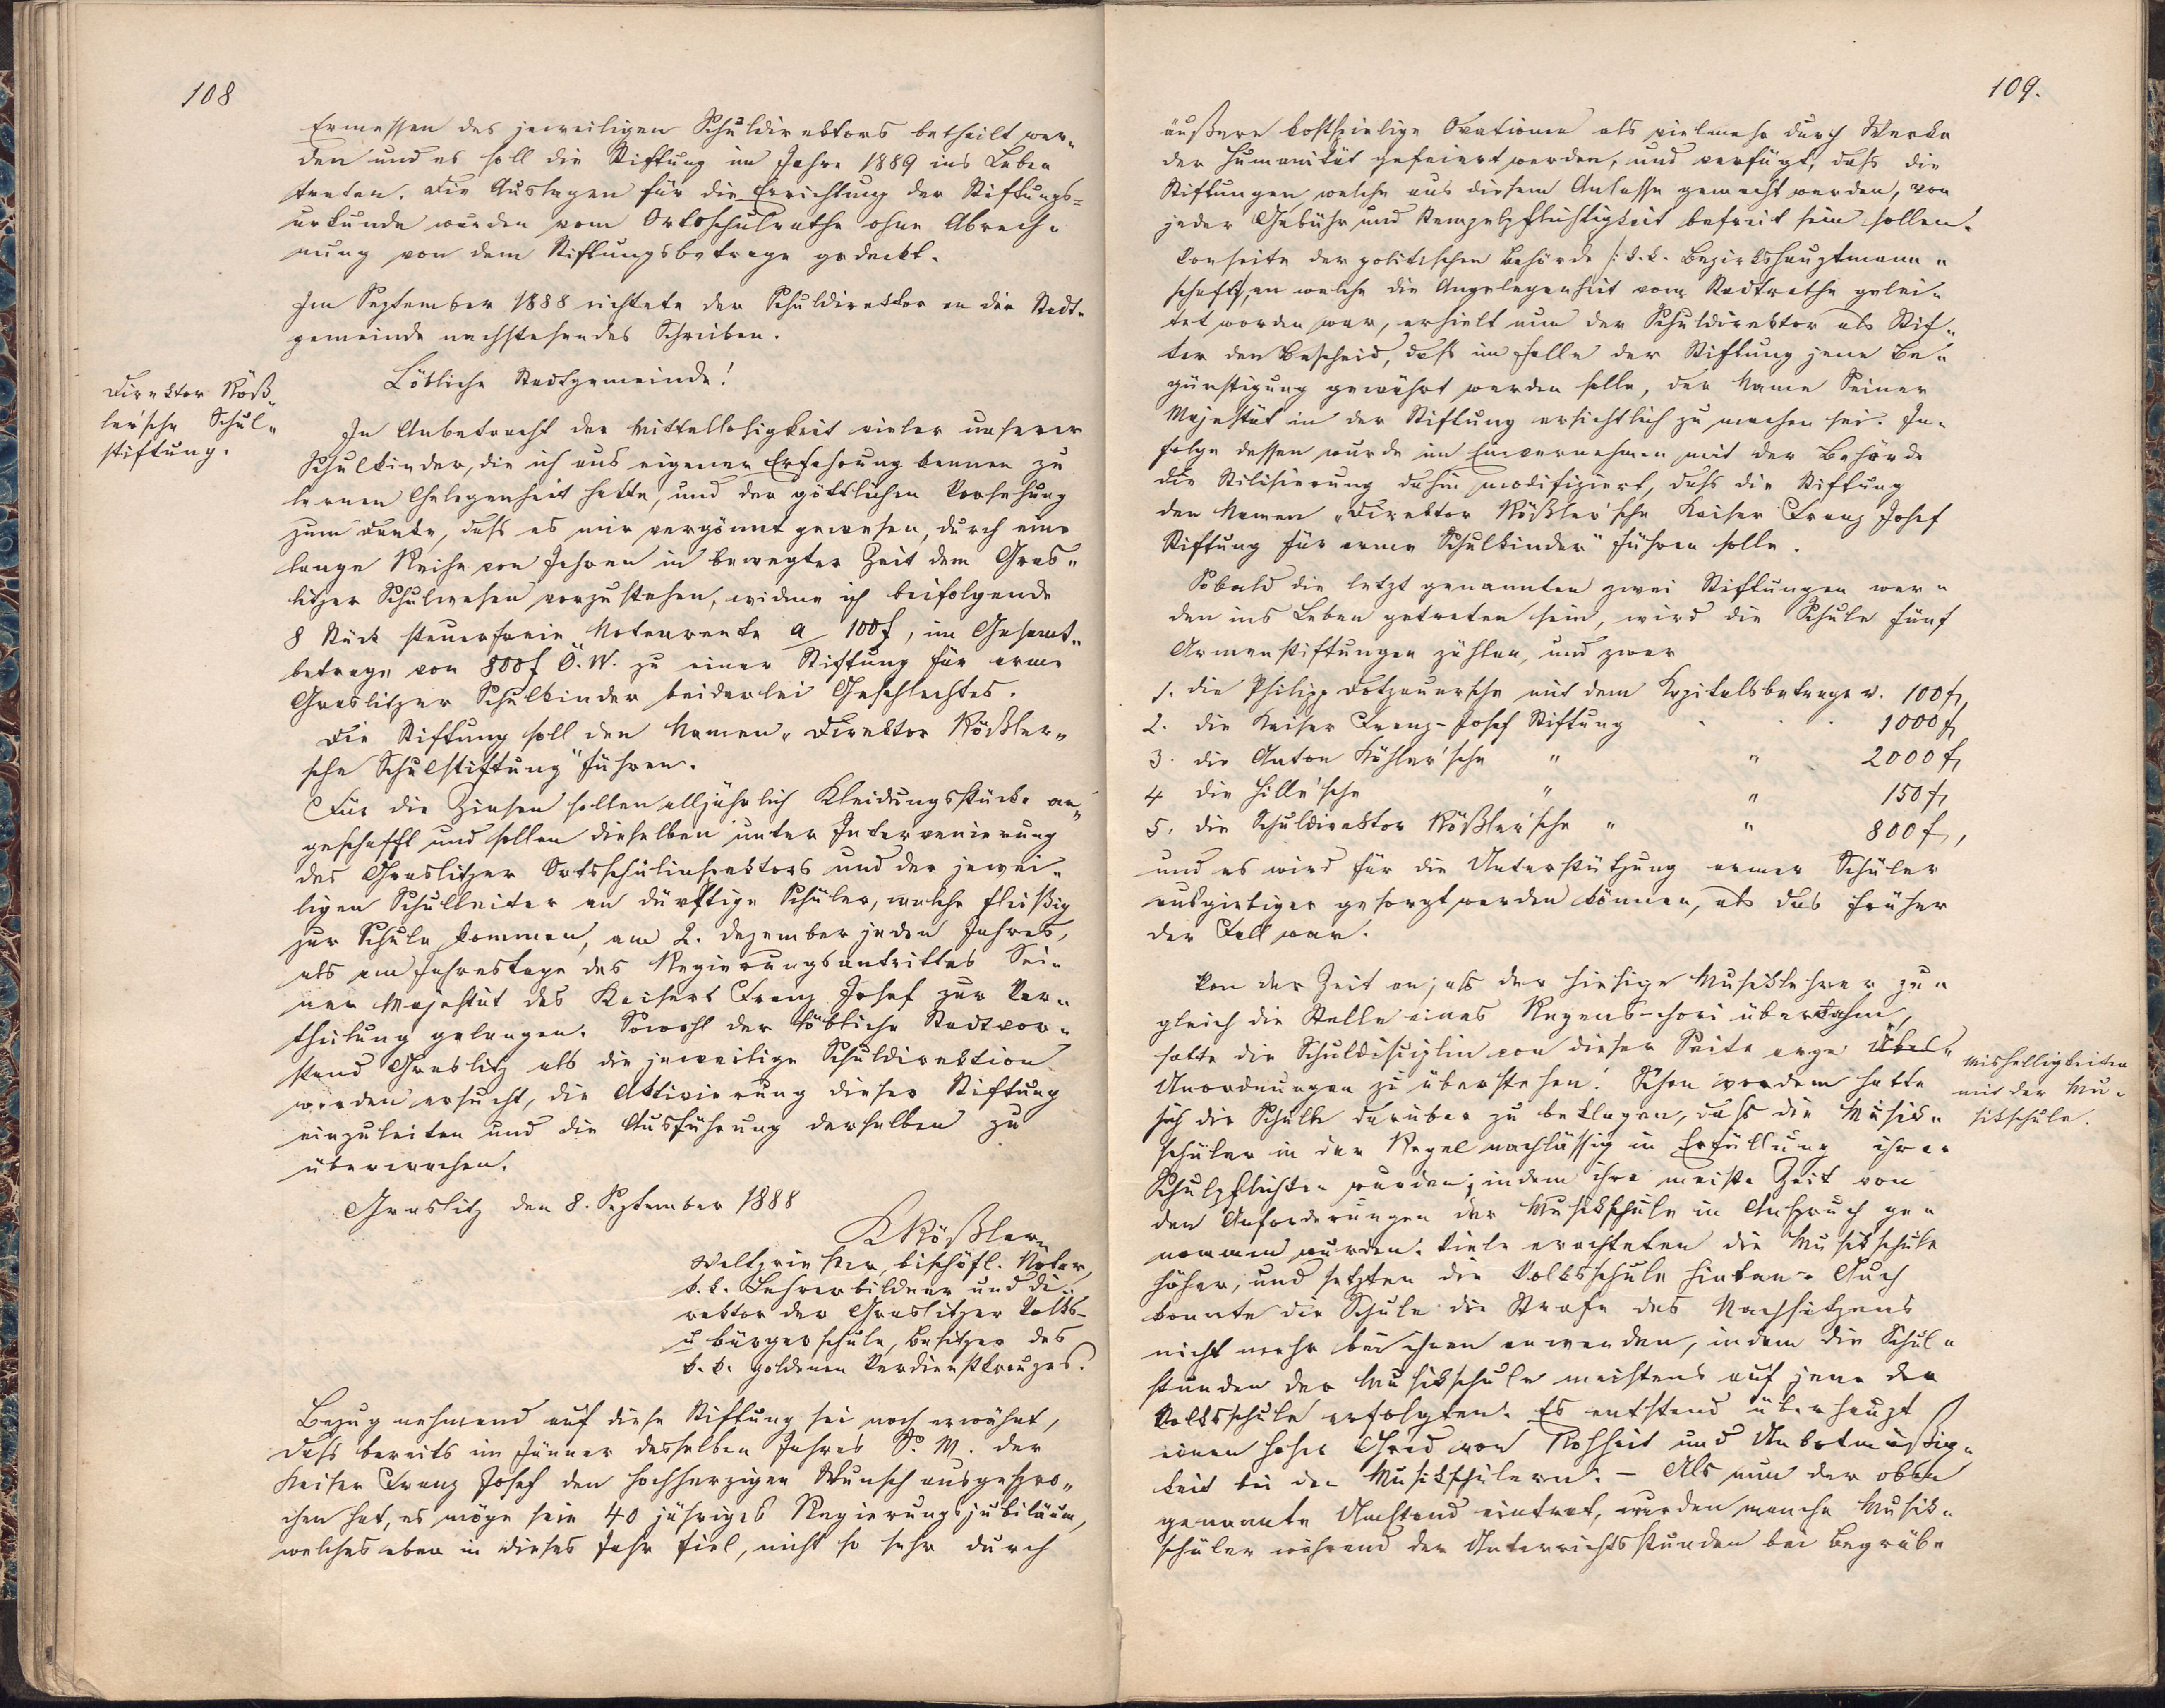 108
Ermessen des jeweiligen Schuldirektors betheilt wer-
den und es soll die Stiftung im Jahre 1889 ins Leben
treten. Die Auslagen für die Errichtung der Stiftungs=
urkunde wurden vom Ortsschulrathe ohne Abrech-
nung von dem Stiftungsbetrage gedeckt.
Im September 1888 richtete der Schuldirektor an die Stadt-
gemeinde nachstehendes Schreiben.
Direktor Röß-
ler'sche Schul-
stiftung.
Löbliche Stadtgemeinde!
In Anbetracht der Mittellosigkeit vieler unserer
Schulkinder, die ich aus eigener Erfahrung kennen zu
lernen Gelegenheit hatte, und der göttlichen Vorsehung
zum Danke, daß es mir vergönnt gewesen, durch eine
lange Reihe von Jahren in bewegter Zeit dem Gras-
litzer Schulwesen vorzustehen, widme ich beifolgende
8 Stück steuerfreie Notenrente a 100 f, im Gesamt-
betrage von 800 f Ö. W. zu einer Stiftung für arme
Graslitzer Schulkinder beiderlei Geschlechtes.
Die Stiftung soll den Namen „Direktor Rößler-
sche Schulstiftung" führen.
Für die Zinsen sollen alljährlich Kleidungsstücke an-
geschafft und sollen dieselben unter Intervenierung
des Graslitzer Ortsschulinspektors und der jewei-
ligen Schulleiter an dürftige Schüler, welche fleißig
zur Schule kommen, am 2. Dezember jeden Jahres,
als am Jahrestage des Regierungsantrittes Sei-
ner Majestät des Kaisers Franz Josef zur Ver-
theilung gelangen. Sowohl der löbliche Stadtvor-
stand Graslitz als die jeweilige Schuldirektion
werden ersucht, die Aktivierung dieser Stiftung
einzuleiten und die Ausführung derselben zu
überwachen.
Graslitz den 8. September 1888
K Rößler
Weltpriester, bischöfl. Notar,
k. k. Lehrerbildner und Di-
rektor der Graslitzer Volks-
u Bürgerschule, Besitzer des
k. k. goldenen Verdienstkreuzes.
Bezug nehmend auf diese Stiftung sei noch erwähnt,
daß bereits im Jänner desselben Jahres S. M. der
Kaiser Franz Josef den hochherzigen Wunsch ausgespro-
chen hat, es möge sein 40 jähriges Regierungsjubiläum,
welches eben in dieses Jahr fiel, nicht so sehr durch
109.
äußere kostspielige Ovationen als vielmehr durch Werke
der Humanität gefeiert werden, und verfügt, daß die
Stiftungen welche aus diesem Anlasse gemacht werden, von
jeder Gebühr und Stempelpflichtigkeit befreit sein sollen.
Vonseite der politischen Behörde /: k. k. Bezirkshauptmann-
schaft, an welche die Angelegenheit vom Stadtrathe gelei-
tet worden war, erhielt nun der Schuldirektor als Stif-
ter den Bescheid, daß im Falle der Stiftung jene Be-
günstigung gewährt werden solle, der Name Seiner
Majestät in der Stiftung ersichtlich zu machen sei. In-
folge dessen wurde im Einvernehmen mit der Behörde
die Stilisierung dahin modifiziert, daß die Stiftung
den Namen „Direktor Rößler'sche Kaiser Franz Josef
Stiftung für arme Schulkinder" führen solle.
Sobald die letzt genannten zwei Stiftungen wer-
den ins Leben getreten sein, wird die Schule fünf
Armenstiftungen zählen, und zwar
1. die Philipp Dotzauersche mit dem Kapitalsbetrage v. 100 f,
2. die Kaiser Franz-Josef Stiftung . . . 1000 f,
3. die Anton Köhler'sche " " 2000 f,
4 die Hille'sche " " 150 f,
5. die Schuldirektor Rößler'sche " " 800 f,
und es wird für die Unterstützung armer Schüler
ausgiebiger gesorgt werden können, als das früher
der Fall war.
Von der Zeit an, als der hiesige Musiklehrer zu-
gleich die Stelle eines Regens-chori übernahm,
hatte die Schuldisciplin von dieser Seite arge Übel-
Unordnungen zu überstehen. Schon vordem hatte
sich die Schule darüber zu beklagen, daß die Musik-
schüler in der Regel nachlässig in Erfüllung ihrer
Schulpflichten wurden, indem ihre meiste Zeit von
den Anforderungen der Musikschule in Anspruch ge-
nommen wurden. Viele erachteten die Musikschule
höher, und setzten die Volksschule hintan. Auch
konnte die Schule die Strafe des Nachsitzens
nicht mehr bei ihnen anwenden, indem die Schul-
stunden der Musikschule meistens auf jene der
Volksschule erfolgten. Es entstand überhaupt
einen hoher Grad von Rohheit und Unbotmäßig-
keit bei den Musikschülern. - Als nun der oben
genannte Umstand eintrat, wurden manche Musik-
schüler während der Unterrichtsstunden bei Begräb-
Mishelligkeiten
mit der Mu-
sikschule.